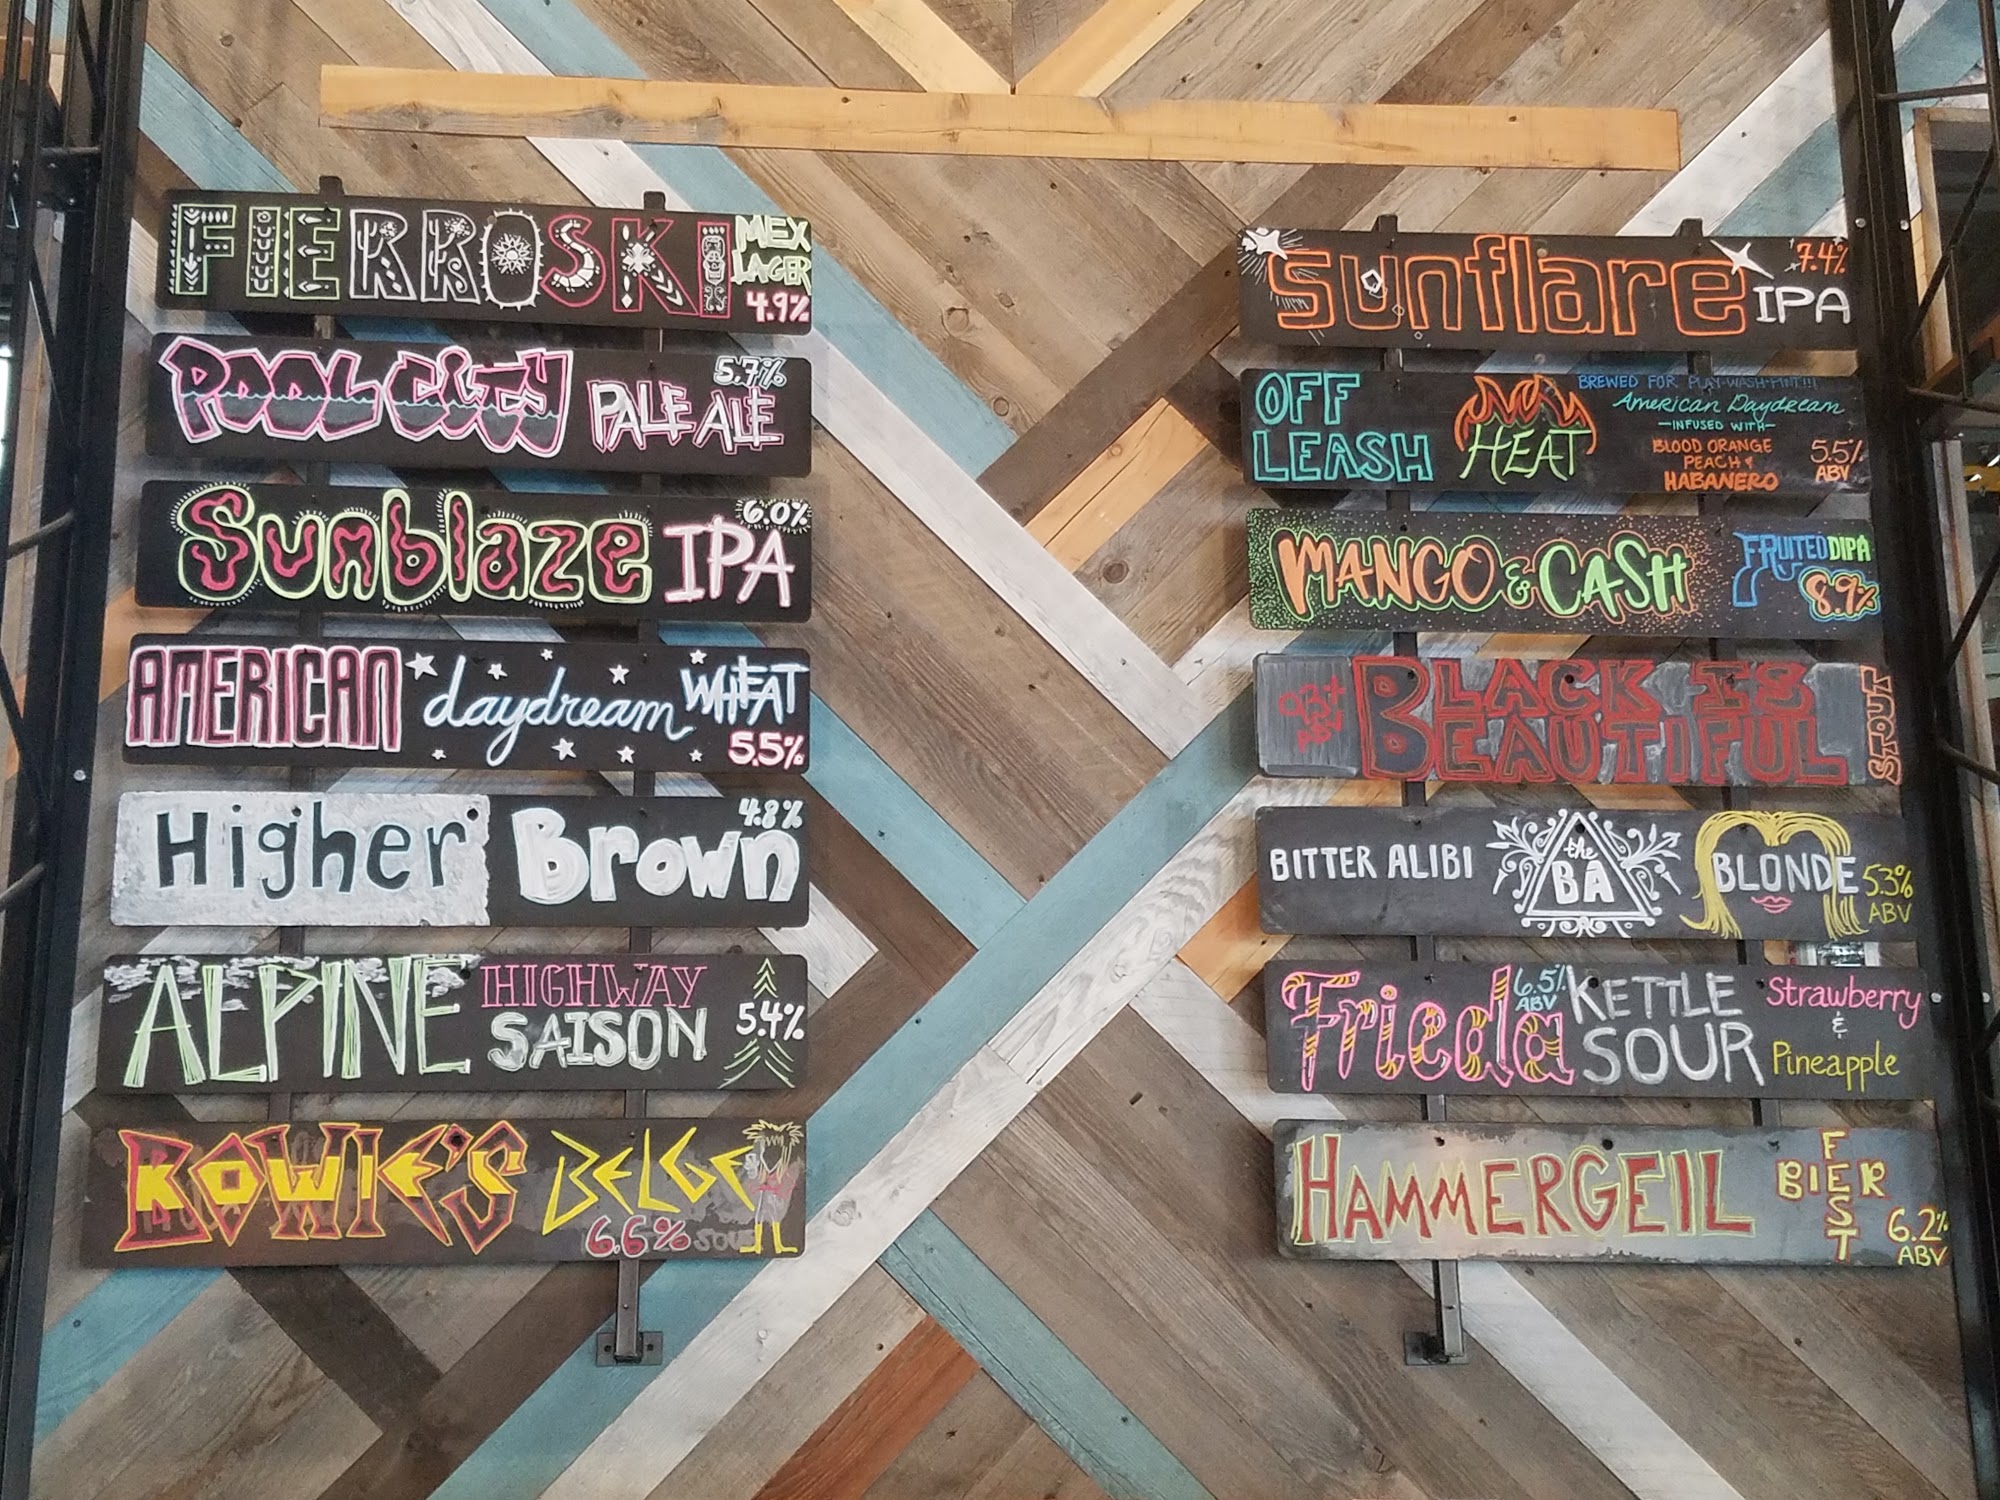 FIERROSKI MEX LAGER 4.9%
POOL CITY PALE ALE 5.7%
Sunblaze IPA 6.0%
AMERICAN daydream WHEAT 5.5%
Higher Brown 4.8%
ALPINE HIGHWAY SAISON 5.4%
BOWIE'S BELGE 6.6%
sunflare IPA 7.4%
OFF LEASH HEAT
BREWED FOR PLAY·WASH·PINT!!!
American Daydream
—INFUSED WITH—
BLOOD ORANGE
PEACH &
HABANERO
5.5% ABV
MANGO & CASH FRUITED DIPA 8.9%
BLACK IS BEAUTIFUL STOUT
BITTER ALIBI the BA BLONDE 5.3% ABV
Frieda 6.5% ABV KETTLE SOUR Strawberry & Pineapple
HAMMERGEIL FEST BIER 6.2% ABV